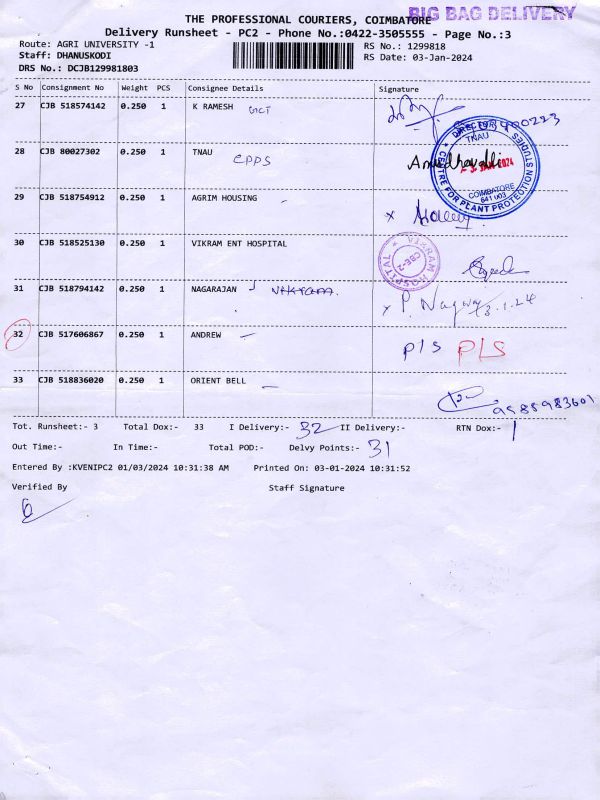 BIG BAG DELIVERY
THE PROFESSIONAL COURIERS, COIMBATORE
Delivery Runsheet - PC2 - Phone No.:0422-3505555 - Page No.:3
Route: AGRI UNIVERSITY -1
RS No.: 1299818
Staff: DHANUSKODI
RS Date: 03-Jan-2024
DRS No.: DCJB129981803
S No Consignment No Weight PCS Consignee Details Signature
27 CJB 518574142 0.250 1 K RAMESH GCT
28 CJB 80027302 0.250 1 TNAU
CPPS
DIRECTOR
TNAU
CENTRE FOR PLANT PROTECTION STUDIES
COIMBATORE
641 003
29 CJB 518754912 0.250 1 AGRIM HOUSING -
x
30 CJB 518525130 0.250 1 VIKRAM ENT HOSPITAL
VIKRAM HOSPITAL
CBE-2
31 CJB 518794142 0.250 1 NAGARAJAN Vikram
x P. Nag 3.1.24
32 CJB 517606867 0.250 1 ANDREW - P/S P/S
33 CJB 518836020 0.250 1 ORIENT BELL -
Tot. Runsheet:- 3 Total Dox:- 33 I Delivery:- 32 II Delivery:- RTN Dox:- 1
Out Time:- In Time:- Total POD:- Delvy Points:- 31
Entered By :KVENIPC2 01/03/2024 10:31:38 AM Printed On: 03-01-2024 10:31:52
Verified By Staff Signature